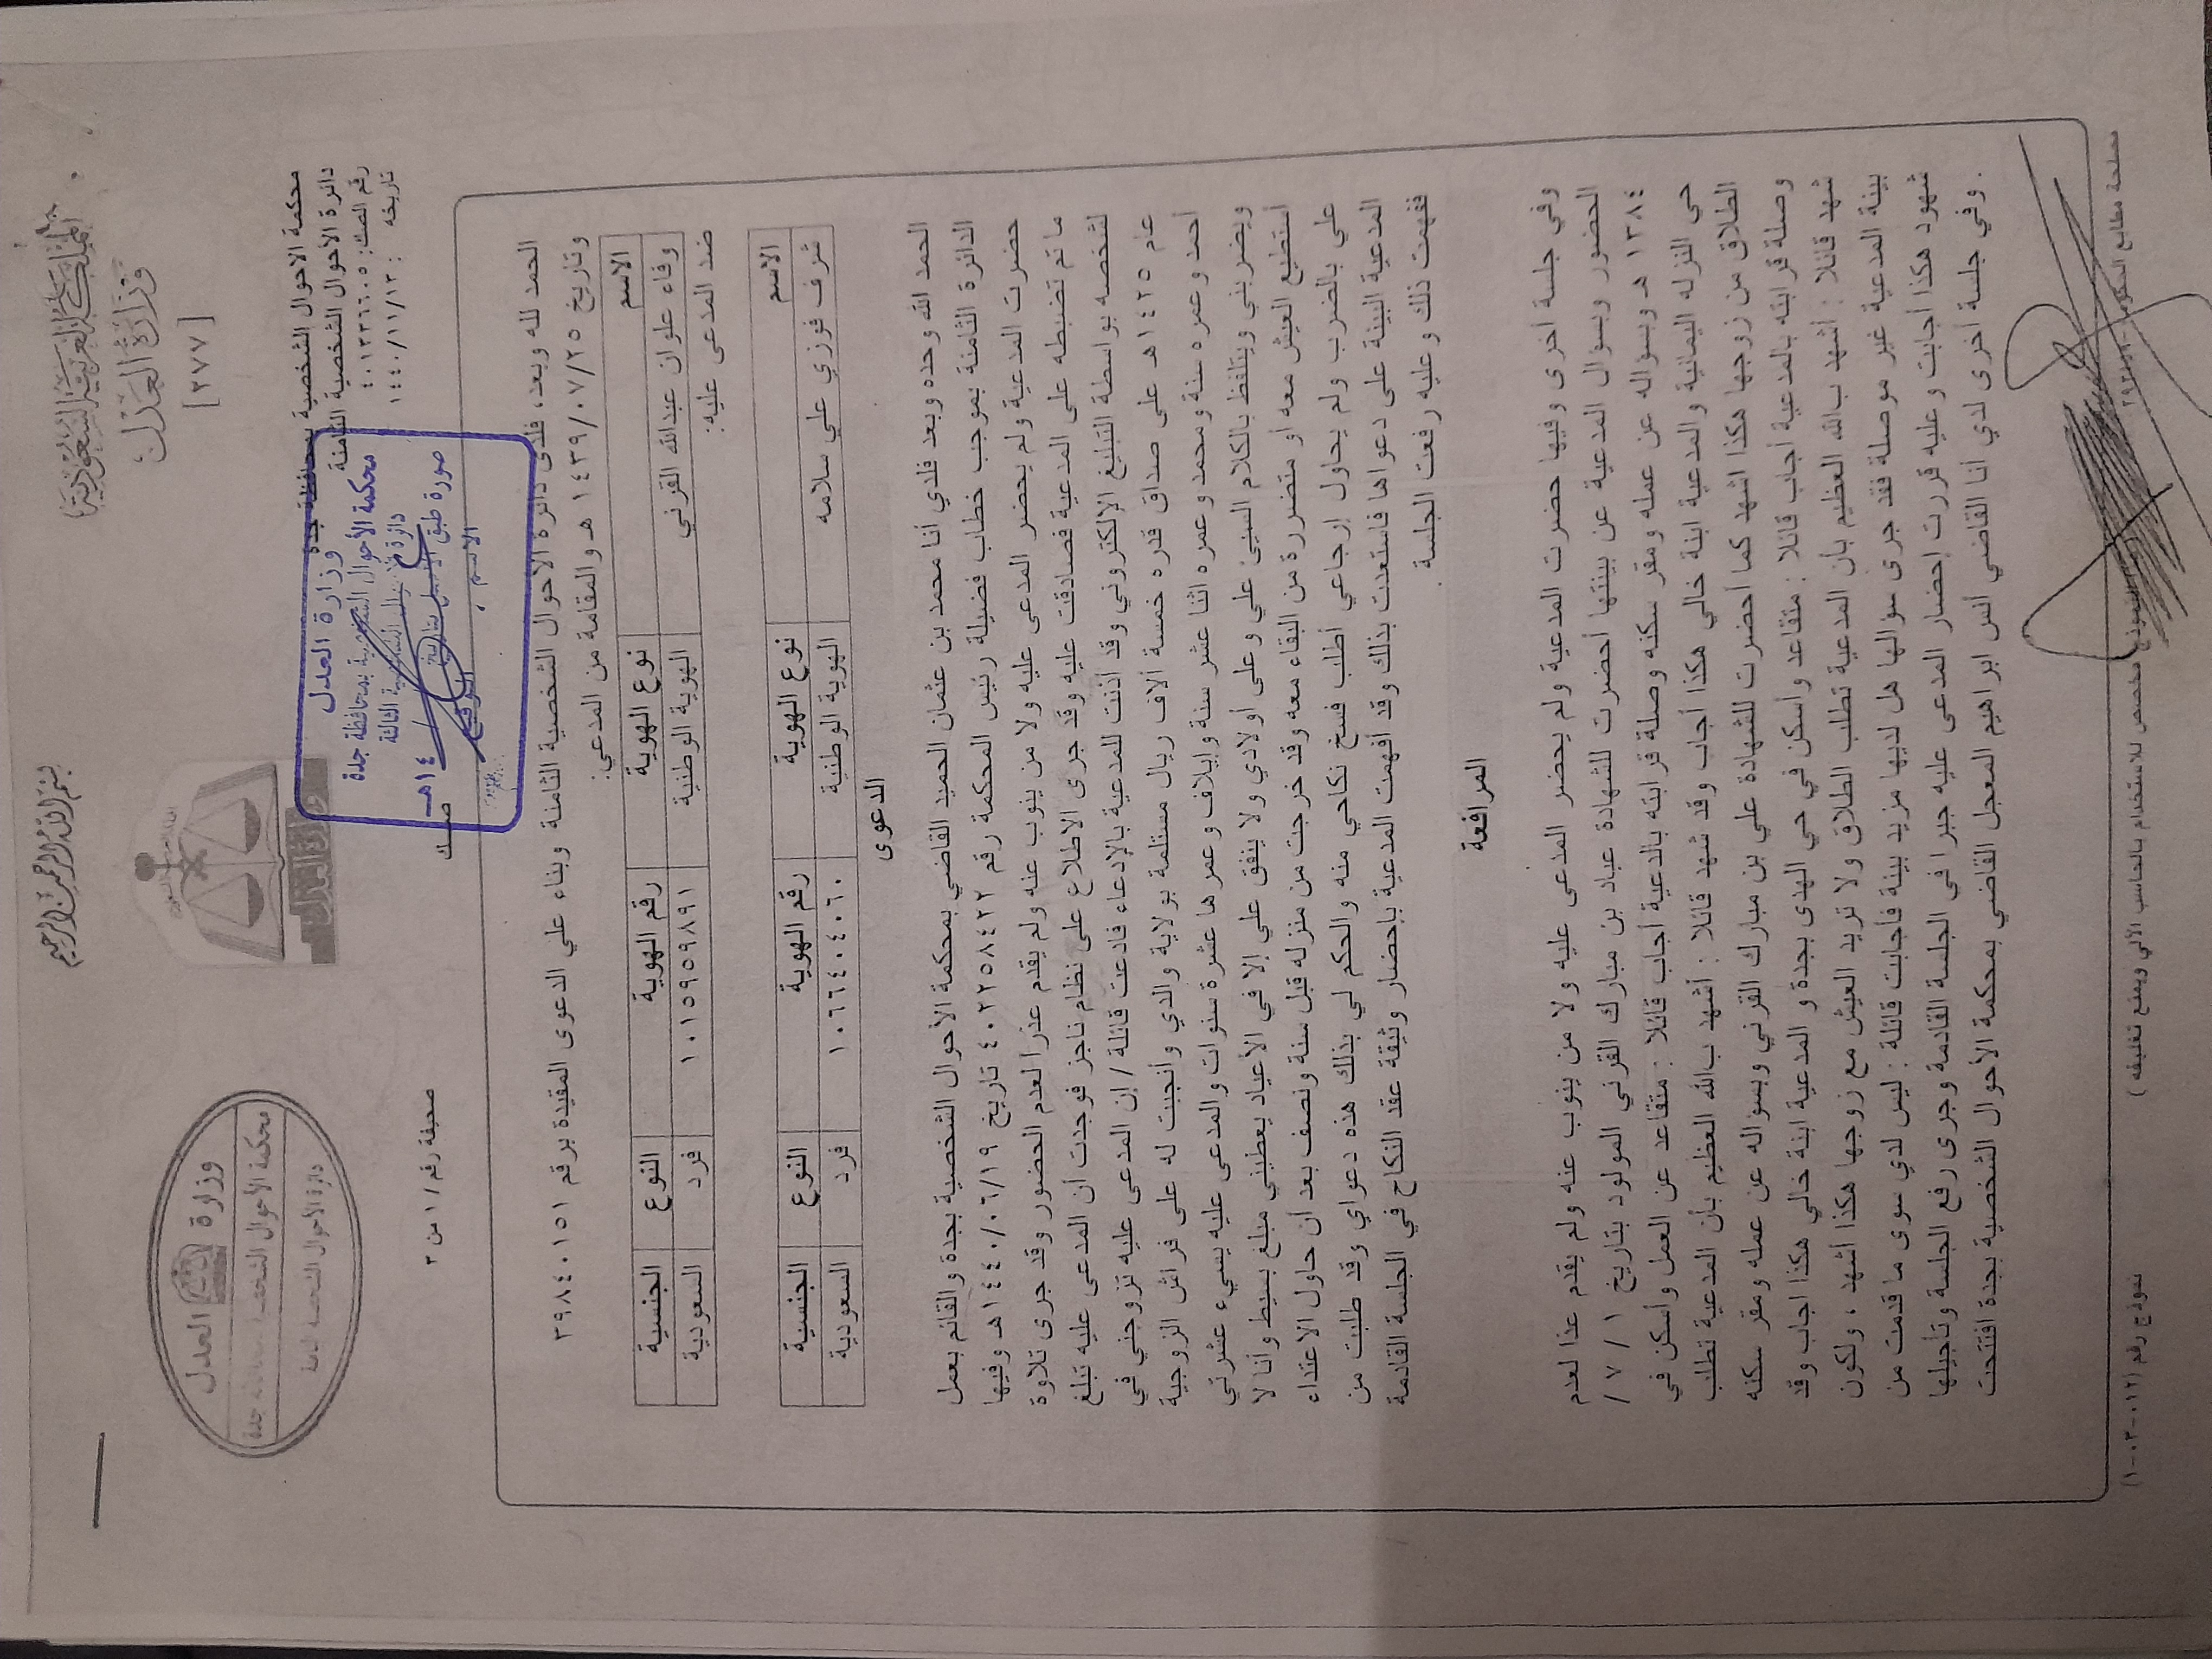 بسم الله الرحمن الرحيم
المملكة العربية السعودية
وزارة العدل
[٢٧٧]
وزارة العدل
وزارة العدل
محكمة الأحوال الشخصية بمحافظة جدة
محكمة الاحوال الشخصية بمحافظة جدة
دائرة الأحوال الشخصية الثامنة
رقم الصك: ٤٠١٣٣٦٦٠٥
تاريخه : ١٤٤٠/١١/١٣
وزارة العدل
محكمة الأحوال الشخصية بمحافظة جدة
دائرة الأحوال الشخصية الثالثة
صورة طبق الأصل بتاريخ / / ١٤هـ
الاسم
التوقيع
صك
صحيفة رقم ١ / من ٣
الحمد لله وبعد، فلدى دائرة الأحوال الشخصية الثامنة وبناء علي الدعوى المقيدة برقم ٣٩٨٤٠١٥١
وتاريخ ١٤٣٩/٠٧/٢٥ هـ والمقامة من المدعي:
الاسم نوع الهوية رقم الهوية النوع الجنسية
وفاء علوان عبدالله القرني الهوية الوطنية ١٠١٥٩٥٩٨٩١ فرد السعودية
ضد المدعى عليه:
الاسم نوع الهوية رقم الهوية النوع الجنسية
شرف فوزي علي سلامه الهوية الوطنية ١٠٦٦٤٠٤٠٦٠ فرد السعودية
الدعوى
الحمد الله وحده وبعد فلدي أنا محمد بن عثمان الحميد القاضي بمحكمة الأحوال الشخصية بجدة والقائم بعمل
الدائرة الثامنة بموجب خطاب فضيلة رئيس المحكمة رقم ٤٠٢٢٥٨٤٢٢ تاريخ ١٤٤٠/٠٦/١٩هـ وفيها
حضرت المدعية ولم يحضر المدعى عليه ولا من ينوب عنه ولم يقدم عذرا لعدم الحضور وقد جرى تلاوة
ما تم تضبطه على المدعية فصادقت عليه وقد جرى الاطلاع على نظام ناجز فوجدت أن المدعى عليه تبلغ
لشخصه بواسطة التبليغ الإلكتروني وقد أذنت للمدعية بالإدعاء فادعت قائلة / إن المدعى عليه تزوجني في
عام ١٤٢٥هـ على صداق قدره خمسة آلاف ريال مستلمة بولاية والدي وأنجبت له على فراش الزوجية
أحمد وعمره سنة ومحمد وعمره اثنا عشر سنة وإيلاف وعمرها عشرة سنوات والمدعى عليه يسيء عشرتي
ويضربني ويتلفظ بالكلام السيئ علي وعلى أولادي ولا ينفق علي إلا في الأعياد يعطيني مبلغ بسيط وأنا لا
أستطيع العيش معه أو متضررة من البقاء معه وقد خرجت من منزله قبل سنة ونصف بعد أن حاول الاعتداء
علي بالضرب ولم يحاول إرجاعي أطلب فسخ نكاحي منه والحكم لي بذلك هذه دعواي وقد طلبت من
المدعية البينة على دعواها فاستعدت بذلك وقد أفهمت المدعية بإحضار وثيقة عقد النكاح في الجلسة القادمة
ففهمت ذلك وعليه رفعت الجلسة .
المرافعة
وفي جلسة أخرى وفيها حضرت المدعية ولم يحضر المدعى عليه ولا من ينوب عنه ولم يقدم عذا لعدم
الحضور وبسوال المدعية عن بينتها أحضرت للشهادة عباد بن مبارك القرني المولود بتاريخ ١ / ٧ /
١٣٨٤ هـ وبسواله عن عمله ومقر سكنه وصلة قرابته بالدعية أجاب قائلا : متقاعد عن العمل وأسكن في
حي النزله اليمانية والمدعية ابنة خالي هكذا أجاب وقد شهد قائلا : أشهد ب الله العظيم بأن المدعية تطلب
الطلاق من زوجها هكذا اشهد كما أحضرت للشهادة علي بن مبارك القرني وبسواله عن عمله ومقر سكنه
وصلة قرابته بالمدعية أجاب قائلا : متقاعد وأسكن في حي الهدى بجدة و المدعية ابنة خالي هكذا اجاب وقد
شهد قائلا : أشهد ب الله العظيم بأن المدعية تطلب الطلاق ولا تريد العيش مع زوجها هكذا أشهد ، ولكون
بينة المدعية غير موصلة فقد جرى سوالها هل لديها مزيد بينة فأجابت قائلة : ليس لدي سوى ما قدمت من
شهود هكذا أجابت وعليه قررت إحضار المدعى عليه جبرا في الجلسة القادمة وجرى رفع الجلسة وتأجيلها
. وفي جلسة أخرى لدي أنا القاضي أنس ابراهيم المعجل القاضي بمحكمة الأحوال الشخصية بجدة افتتحت
مصلحة مطابع الحكومة
النموذج مخصص للاستخدام بالحاسب الآلي ويمنع تغليفه )
نموذج رقم (١٢-٠٣-٠١)